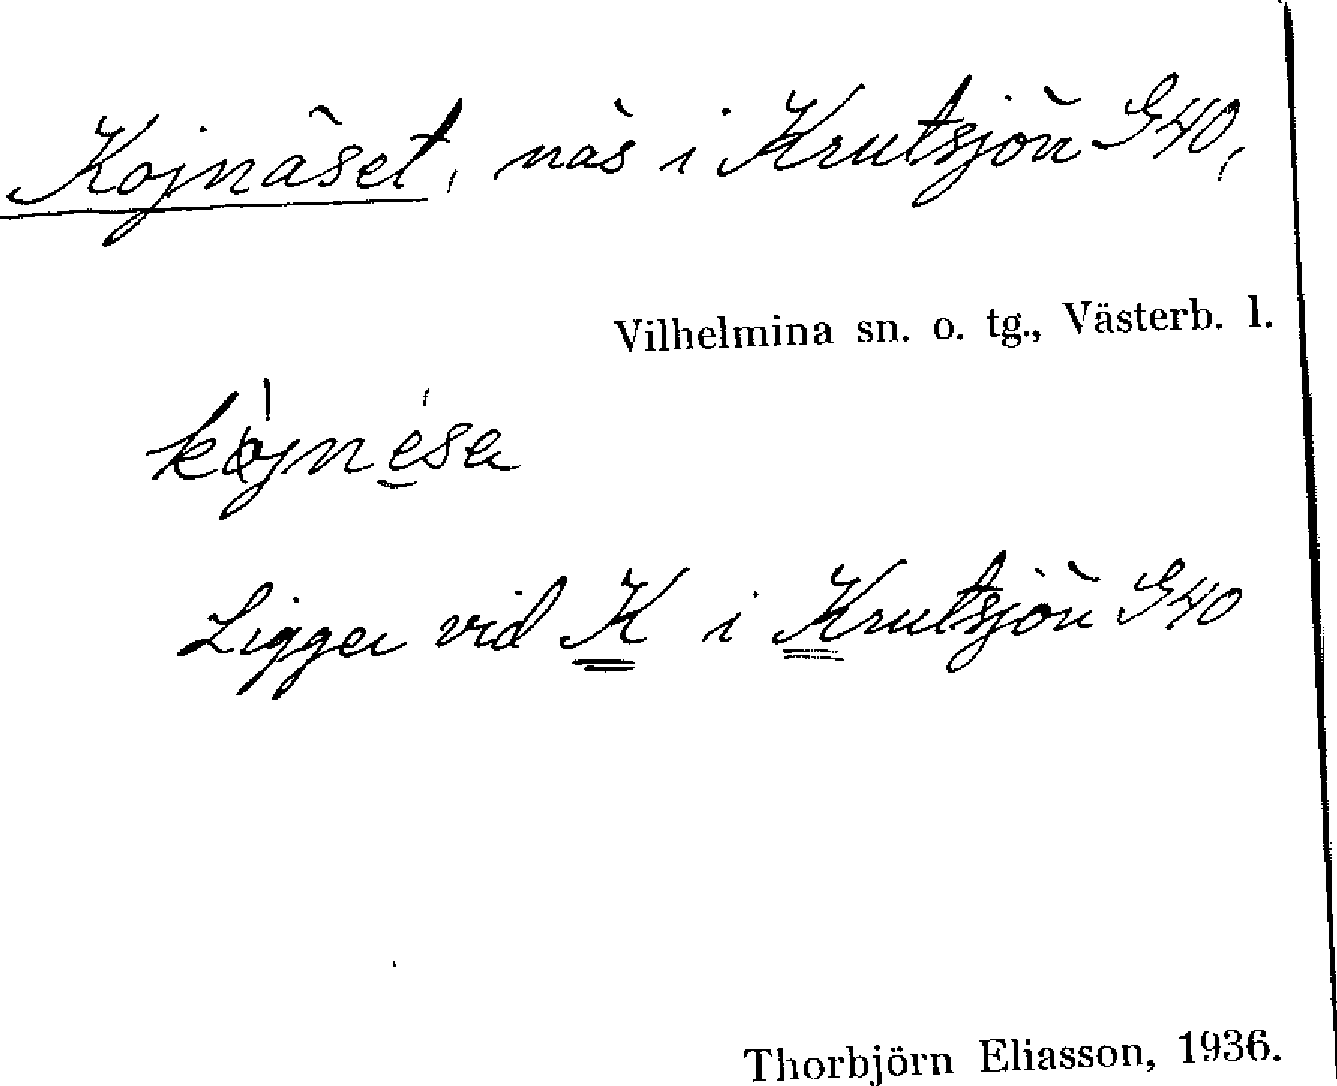 Kojnäset, näs i Krutsjön G40,
Vilhelmina sn. o. tg., Västerb. l.
Ligger vid K i Krutsjön G40
Thorbjörn Eliasson, 1936.